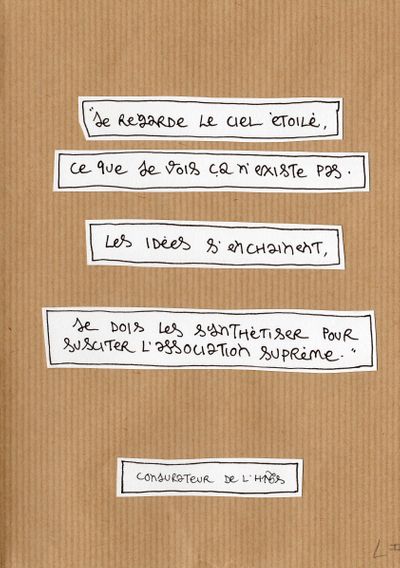 "Je regarde le ciel étoilé,
ce que je vois ça n'existe pas.
Les idées s'enchainent,
Je dois les synthétiser pour
susciter l'association suprème."
CONJURATEUR DE